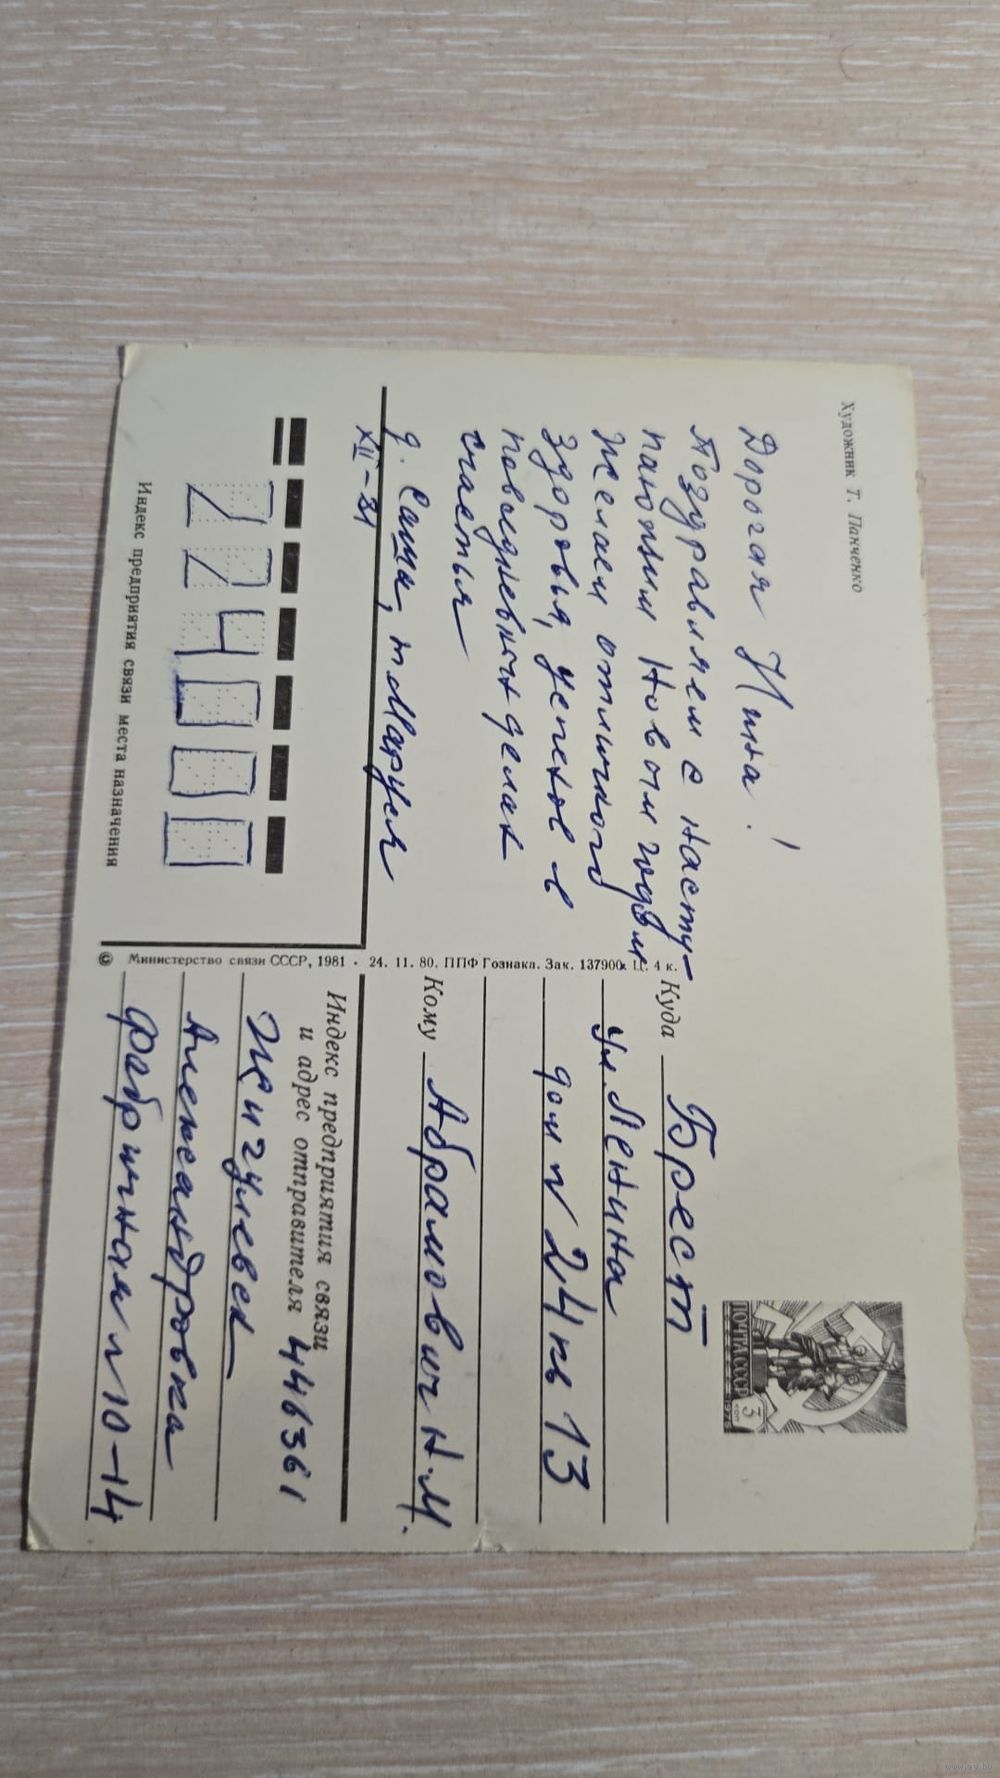 Художник Т. Панченко
Дорогая Нина!
Поздравляем с насту-
пающим Новым годом
Желаем отличного
здоровья, успехов в
повседневных делах
счастья
д. Саша, т. Маруся
XII-81
224000
Индекс предприятия связи места назначения
© Министерство связи СССР, 1981 · 24. 11. 80. ППФ Гознака. Зак. 137900. Ц. 4 к.
ПОЧТА СССР
3 коп
Куда Брест
ул. Ленина
дом N 24 кв 13
Кому Абрамович Н.М.
Индекс предприятия связи
и адрес отправителя 446361
Жигулевск
Александровка
Фабричная N 10-14